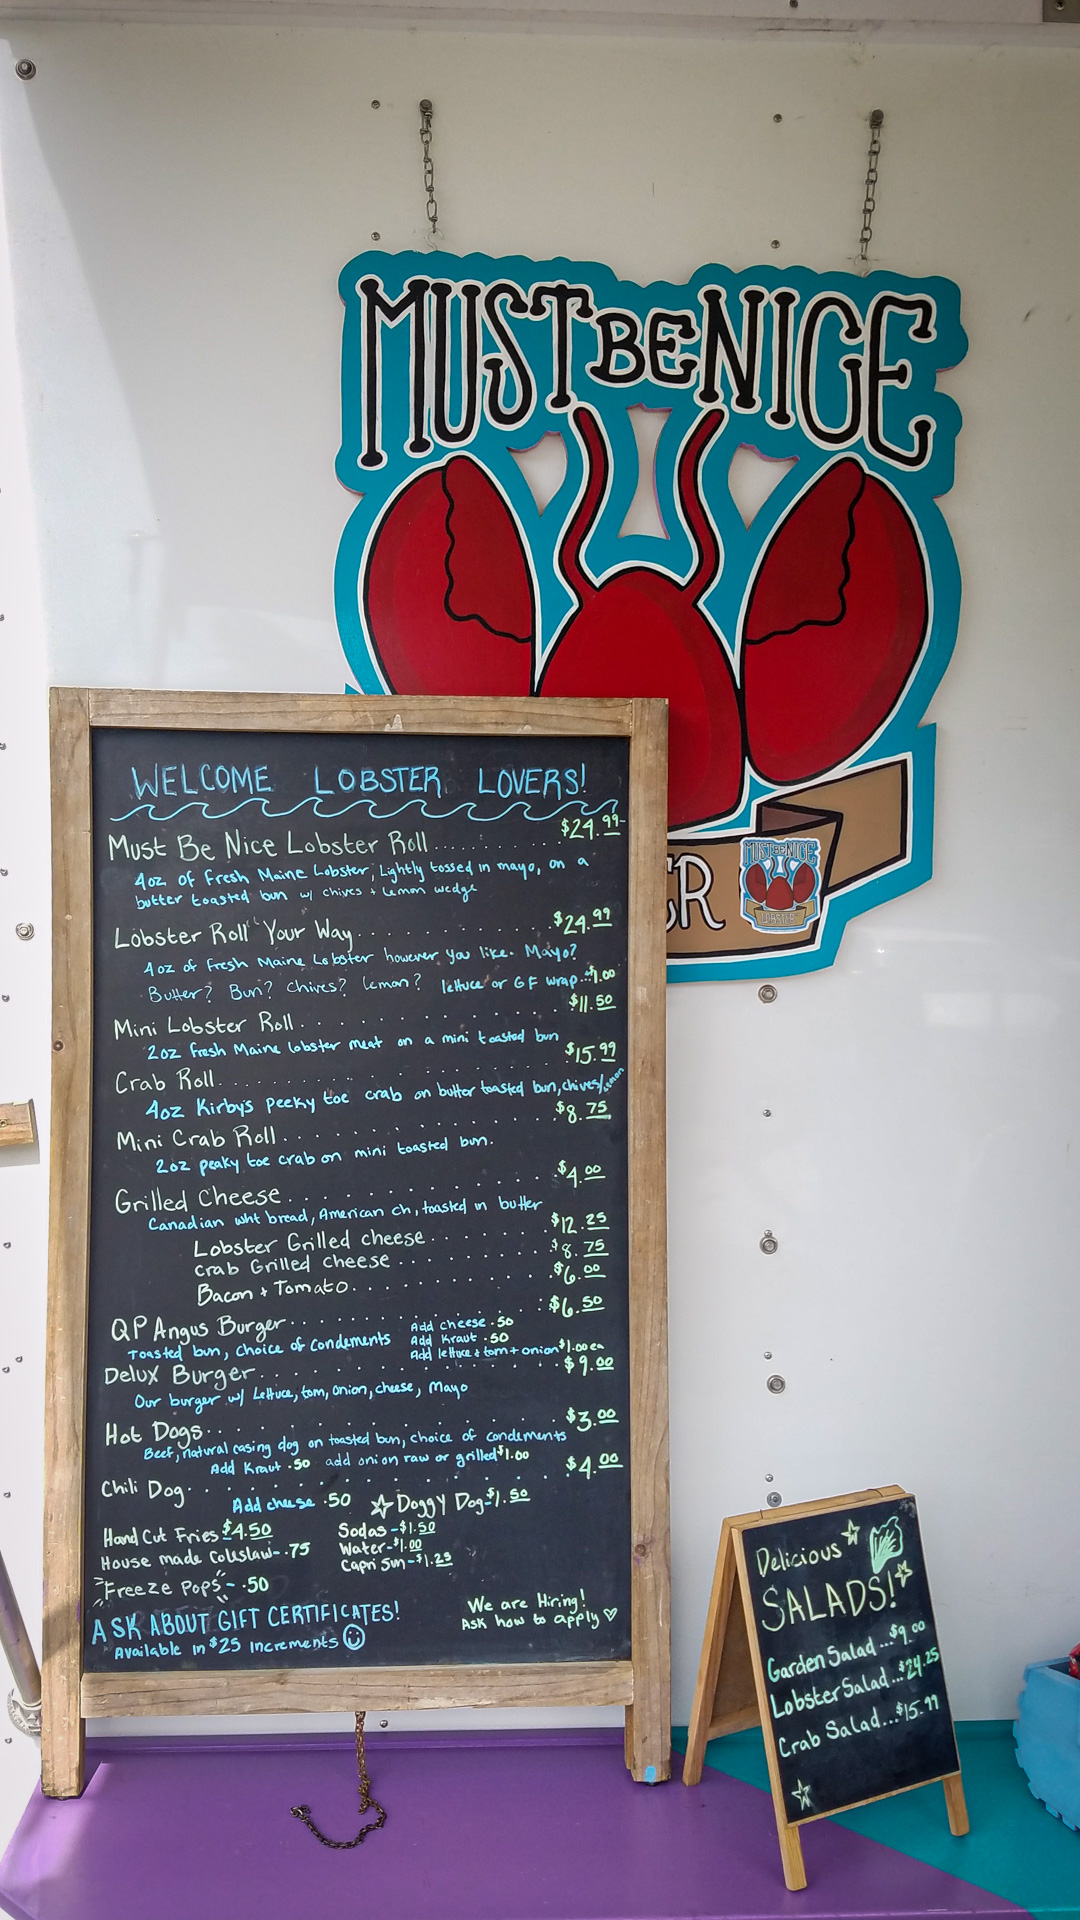 MUST BE NICE
WELCOME LOBSTER LOVERS!
Must Be Nice Lobster Roll.......... $24.99
4oz of Fresh Maine Lobster, Lightly tossed in mayo, on a
butter toasted bun w/ chives + Lemon wedge
Lobster Roll "Your Way.......... $24.99
4oz of fresh Maine Lobster however you like. Mayo?
Butter? Bun? Chives? Lemon? lettuce or GF wrap..$1.00
Mini Lobster Roll.......... $11.50
2oz fresh Maine lobster meat on a mini toasted bun
Crab Roll.......... $15.99
4oz Kirby's Peeky toe crab on butter toasted bun, chives/lemon
Mini Crab Roll.......... $8.75
2oz peaky toe crab on mini toasted bun.
Grilled Cheese.......... $4.00
Canadian wht bread, American ch, toasted in butter
Lobster Grilled cheese.......... $12.25
Crab Grilled Cheese.......... $8.75
Bacon + Tomato.......... $6.00
QP Angus Burger.......... $6.50
Toasted bun, choice of Condements
Add cheese .50
Add Kraut .50
Add lettuce + tom + onion $1.00 ea
Delux Burger.......... $9.00
Our burger w/ Lettuce, tom, onion, cheese, Mayo
Hot Dogs.......... $3.00
Beef, natural casing dog on toasted bun, choice of condements
Add Kraut .50 add onion raw or grilled $1.00
Chili Dog.......... $4.00
Add cheese .50 ☆ Doggy Dog-$1.50
Hand Cut Fries $4.50
House made coleslaw-.75
"Freeze Pops"- .50
Sodas -$1.50
Water-$1.00
Capri Sun-$1.25
ASK ABOUT GIFT CERTIFICATES!
Available in $25 Increments
We are Hiring!
Ask how to apply ♡
ER
MUST BE NICE
LOBSTER
Delicious
SALADS!
Garden Salad...$9.00
Lobster Salad...$24.25
Crab Salad...$15.99